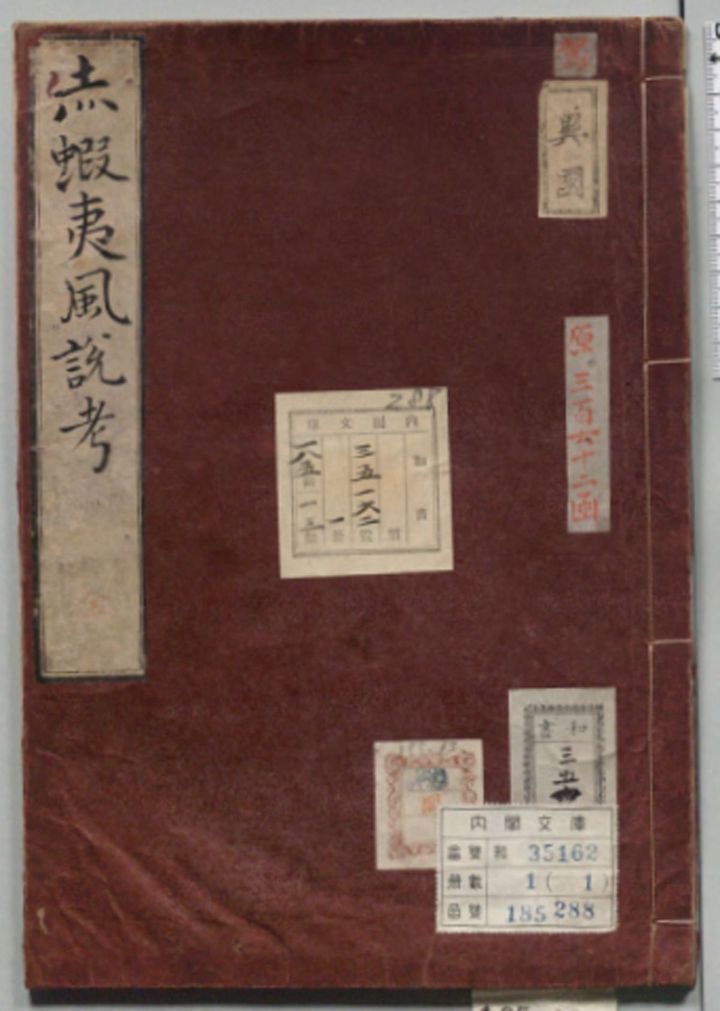 赤蝦夷風説考
全
異國
原。三百六十二函
288
内閣文庫
和書
三五一六二
一
一八五
和書
三五
内閣文庫
番號 和 35162
册數 1 ( 1 )
函號 185 288